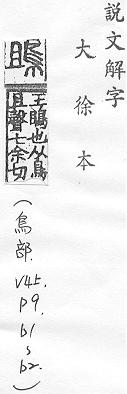 說文解字
大徐本
鴡
王鴡也从鳥
且聲七余切
(鳥部.
V4上.
p9.
b1
s
b2.)